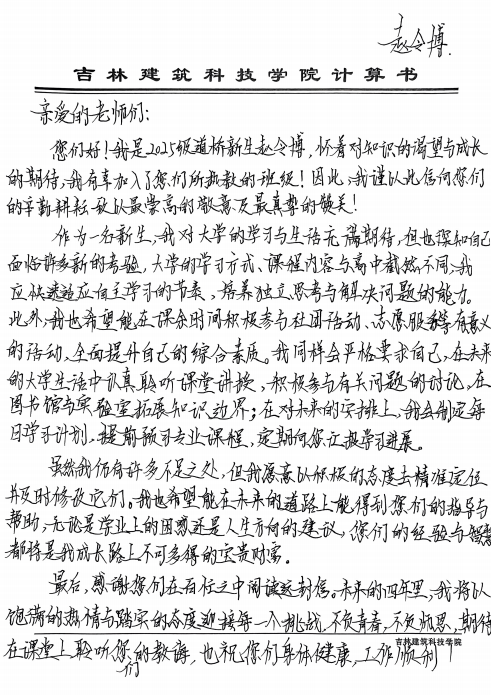 赵令博.
吉林建筑科技学院计算书
亲爱的老师们:
您们好!我是2025级道桥新生赵令博,怀着对知识的渴望与成长
的期待,我有幸加入了您们所执教的班级!因此,我谨以此信向您们
的辛勤耕耘致以最崇高的敬意及最真挚的赞美!
作为一名新生,我对大学的学习与生活充满期待,但也深知自己
面临许多新的考验,大学的学习方式、课程内容与高中截然不同,我
应快速适应自主学习的节奏,培养独立思考与解决问题的能力。
此外,我也希望能在课余时间积极参与社团活动、志愿服务等有意义
的活动,全面提升自己的综合素质。我同样会严格要求自己,在未来
的大学生活中认真聆听课堂讲授,积极参与有关问题的讨论,在
图书馆与实验室拓展知识边界;在对未来的安排上,我会制定每
日学习计划,提前预习专业课程,定期向您汇报学习进展。
虽然我仍有许多不足之处,但我愿意以积极的态度去精准定位
并及时修改它们。我也希望能在未来的道路上能得到您们的指导与
帮助,无论是学业上的困惑还是人生方向的建议,您们的经验与智慧
都将是我成长路上不可多得的宝贵财富。
最后,感谢您们在百忙之中阅读这封信。未来的四年里,我将以
饱满的热情与踏实的态度迎接每一个挑战,不负青春,不负师恩,期待
在课堂上聆听您们的教诲,也祝您们身体健康,工作顺利!
吉林建筑科技学院